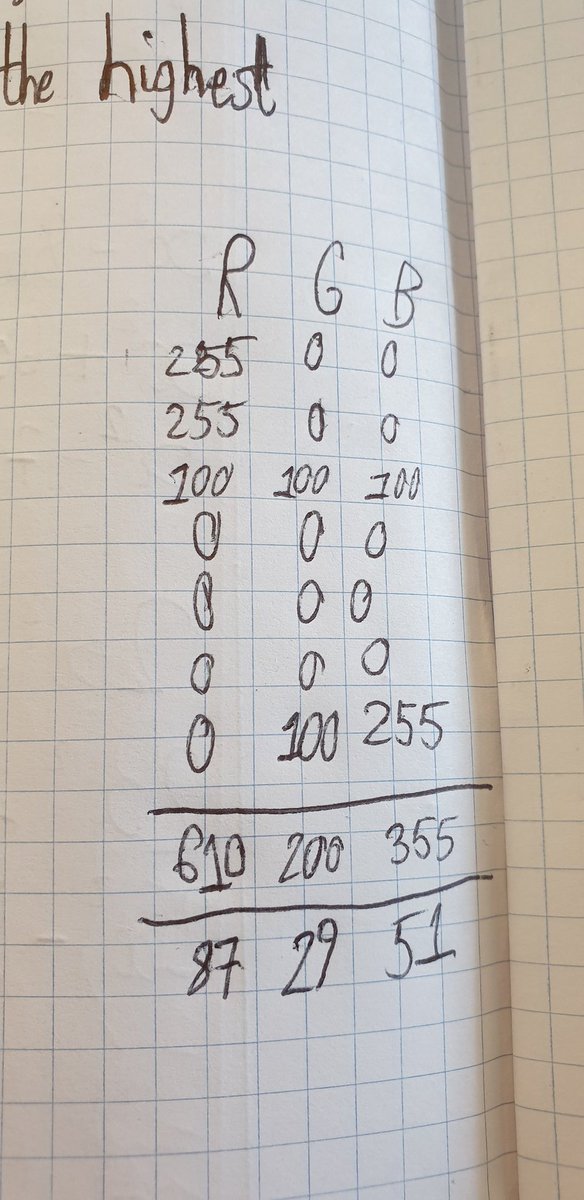 the highest
R G B
255 0 0
255 0 0
100 100 100
0 0 0
0 0 0
0 0 0
0 100 255
610 200 355
87 29 51